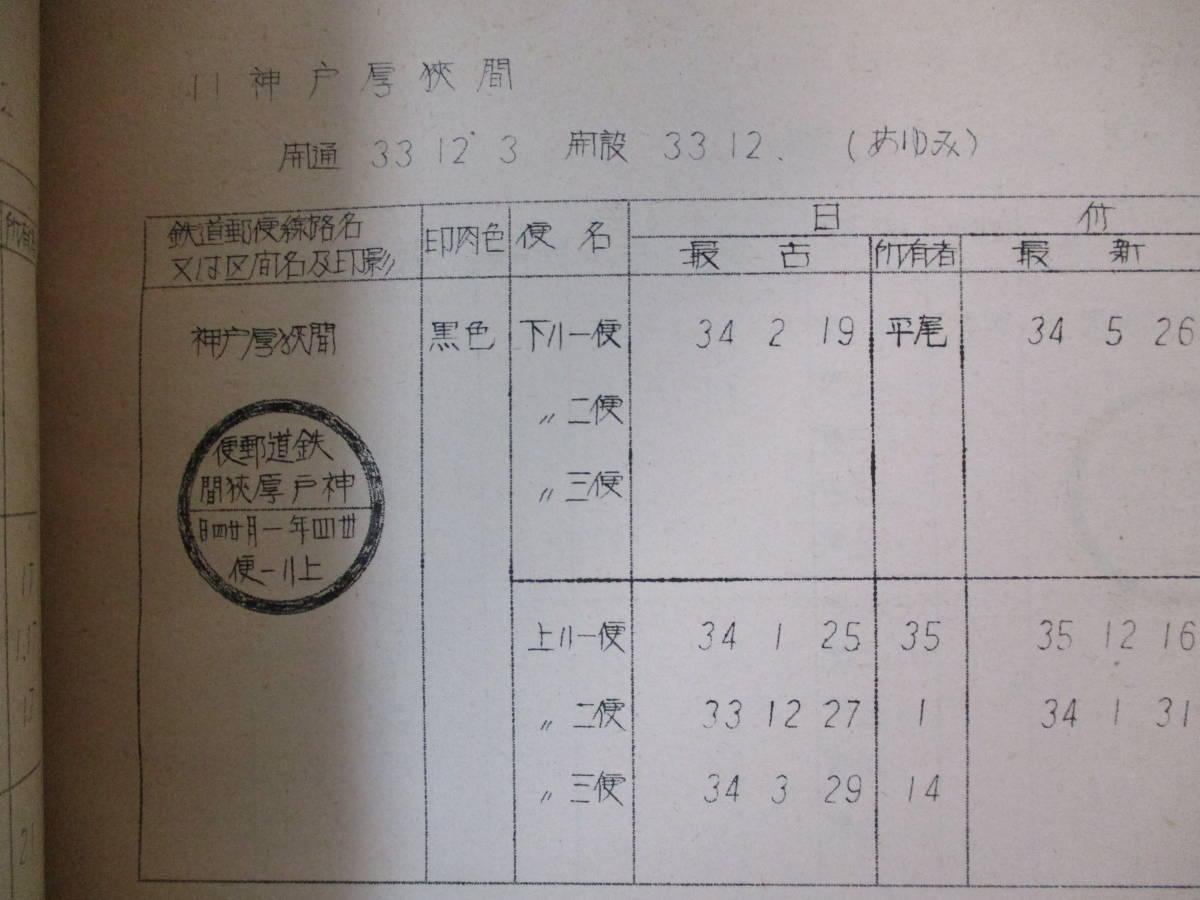 11 神戸厚狭間
開通 33 12 3 開設 33 12. (あゆみ)
鉄道郵便線路名
又は区間名及印影
印肉色
便名
日付
最古
所有者
最新
神戸厚狭間
黒色
下り一便 34 2 19 平尾 34 5 26
〃二便
〃三便
便郵道鉄
間狭厚戸神
日四廿月一年四卅
便一り上
上り一便 34 1 25 35 35 12 16
〃二便 33 12 27 1 34 1 31
〃三便 34 3 29 14
所有
17
21